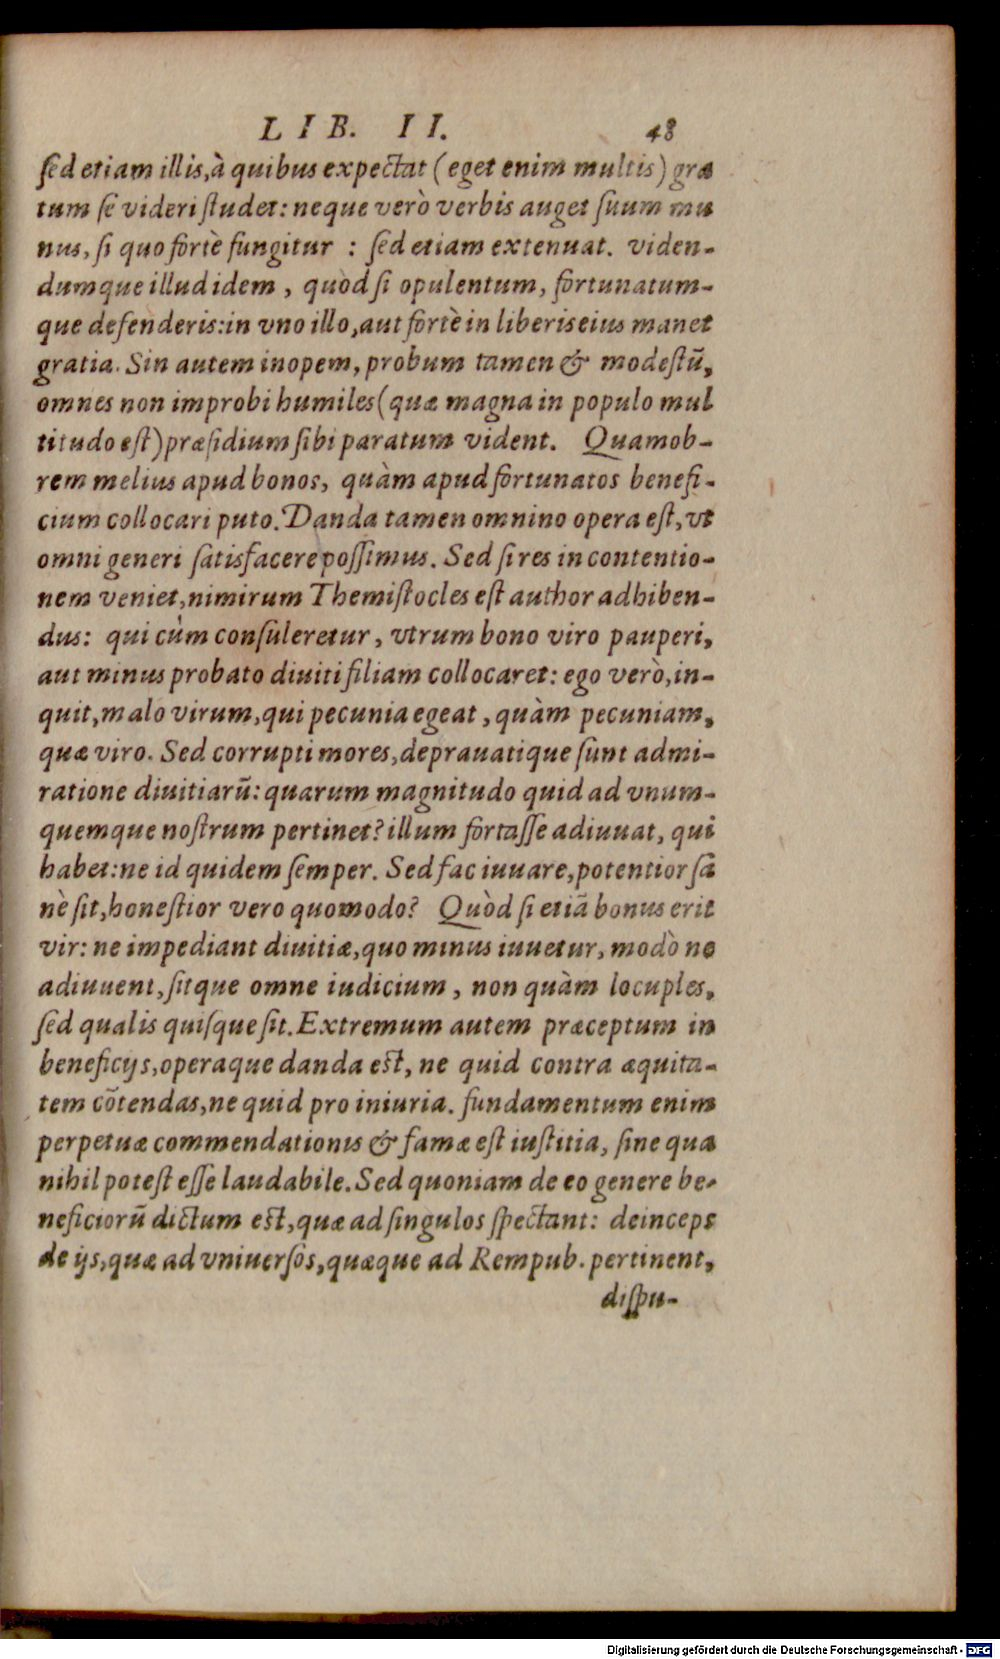 LIB. II. 48
ſed etiam illis,à quibus expectat (eget enim multis) gra
tum ſe videri ſtudet: neque verò verbis auget ſuum mu
nus, ſi quo fortè fungitur : ſed etiam extenuat. viden-
dumque illud idem, quòd ſi opulentum, fortunatum-
que defenderis:in vno illo,aut fortè in liberis eius manet
gratia. Sin autem inopem, probum tamen & modeſtū,
omnes non improbi humiles(quæ magna in populo mul
titudo eſt)præſidium ſibi paratum vident. Quamob-
rem melius apud bonos, quàm apud fortunatos benefi-
cium collocari puto. Danda tamen omnino opera eſt, vt
omni generi ſatisfacere poſſimus. Sed ſi res in contentio-
nem veniet,nimirum Themiſtocles eſt author adhiben-
dus: qui cùm conſuleretur, vtrum bono viro pauperi,
aut minus probato diuiti filiam collocaret: ego verò,in-
quit,malo virum,qui pecunia egeat, quàm pecuniam,
quæ viro. Sed corrupti mores,deprauatique ſunt admi-
ratione diuitiarū: quarum magnitudo quid ad vnum-
quemque noſtrum pertinet? illum fortaſſe adiuuat, qui
habet:ne id quidem ſemper. Sed fac iuuare,potentior ſa
nè ſit,honeſtior vero quomodo? Quòd ſi etiā bonus erit
vir: ne impediant diuitiæ,quo minus iuuetur, modò ne
adiuuent,ſitque omne iudicium, non quàm locuples,
ſed qualis quiſque ſit. Extremum autem præceptum in
beneficijs,operaque danda eſt, ne quid contra æquita-
tem cōtendas,ne quid pro iniuria. fundamentum enim
perpetuæ commendationis & famæ eſt iuſtitia, ſine qua
nihil poteſt eſſe laudabile. Sed quoniam de eo genere be-
neficiorū dictum eſt,quæ ad ſingulos ſpectant: deinceps
de ijs,quæ ad vniuerſos,quæque ad Rempub. pertinent,
diſpu-
Digitalisierung gefördert durch die Deutsche Forschungsgemeinschaft - DFG